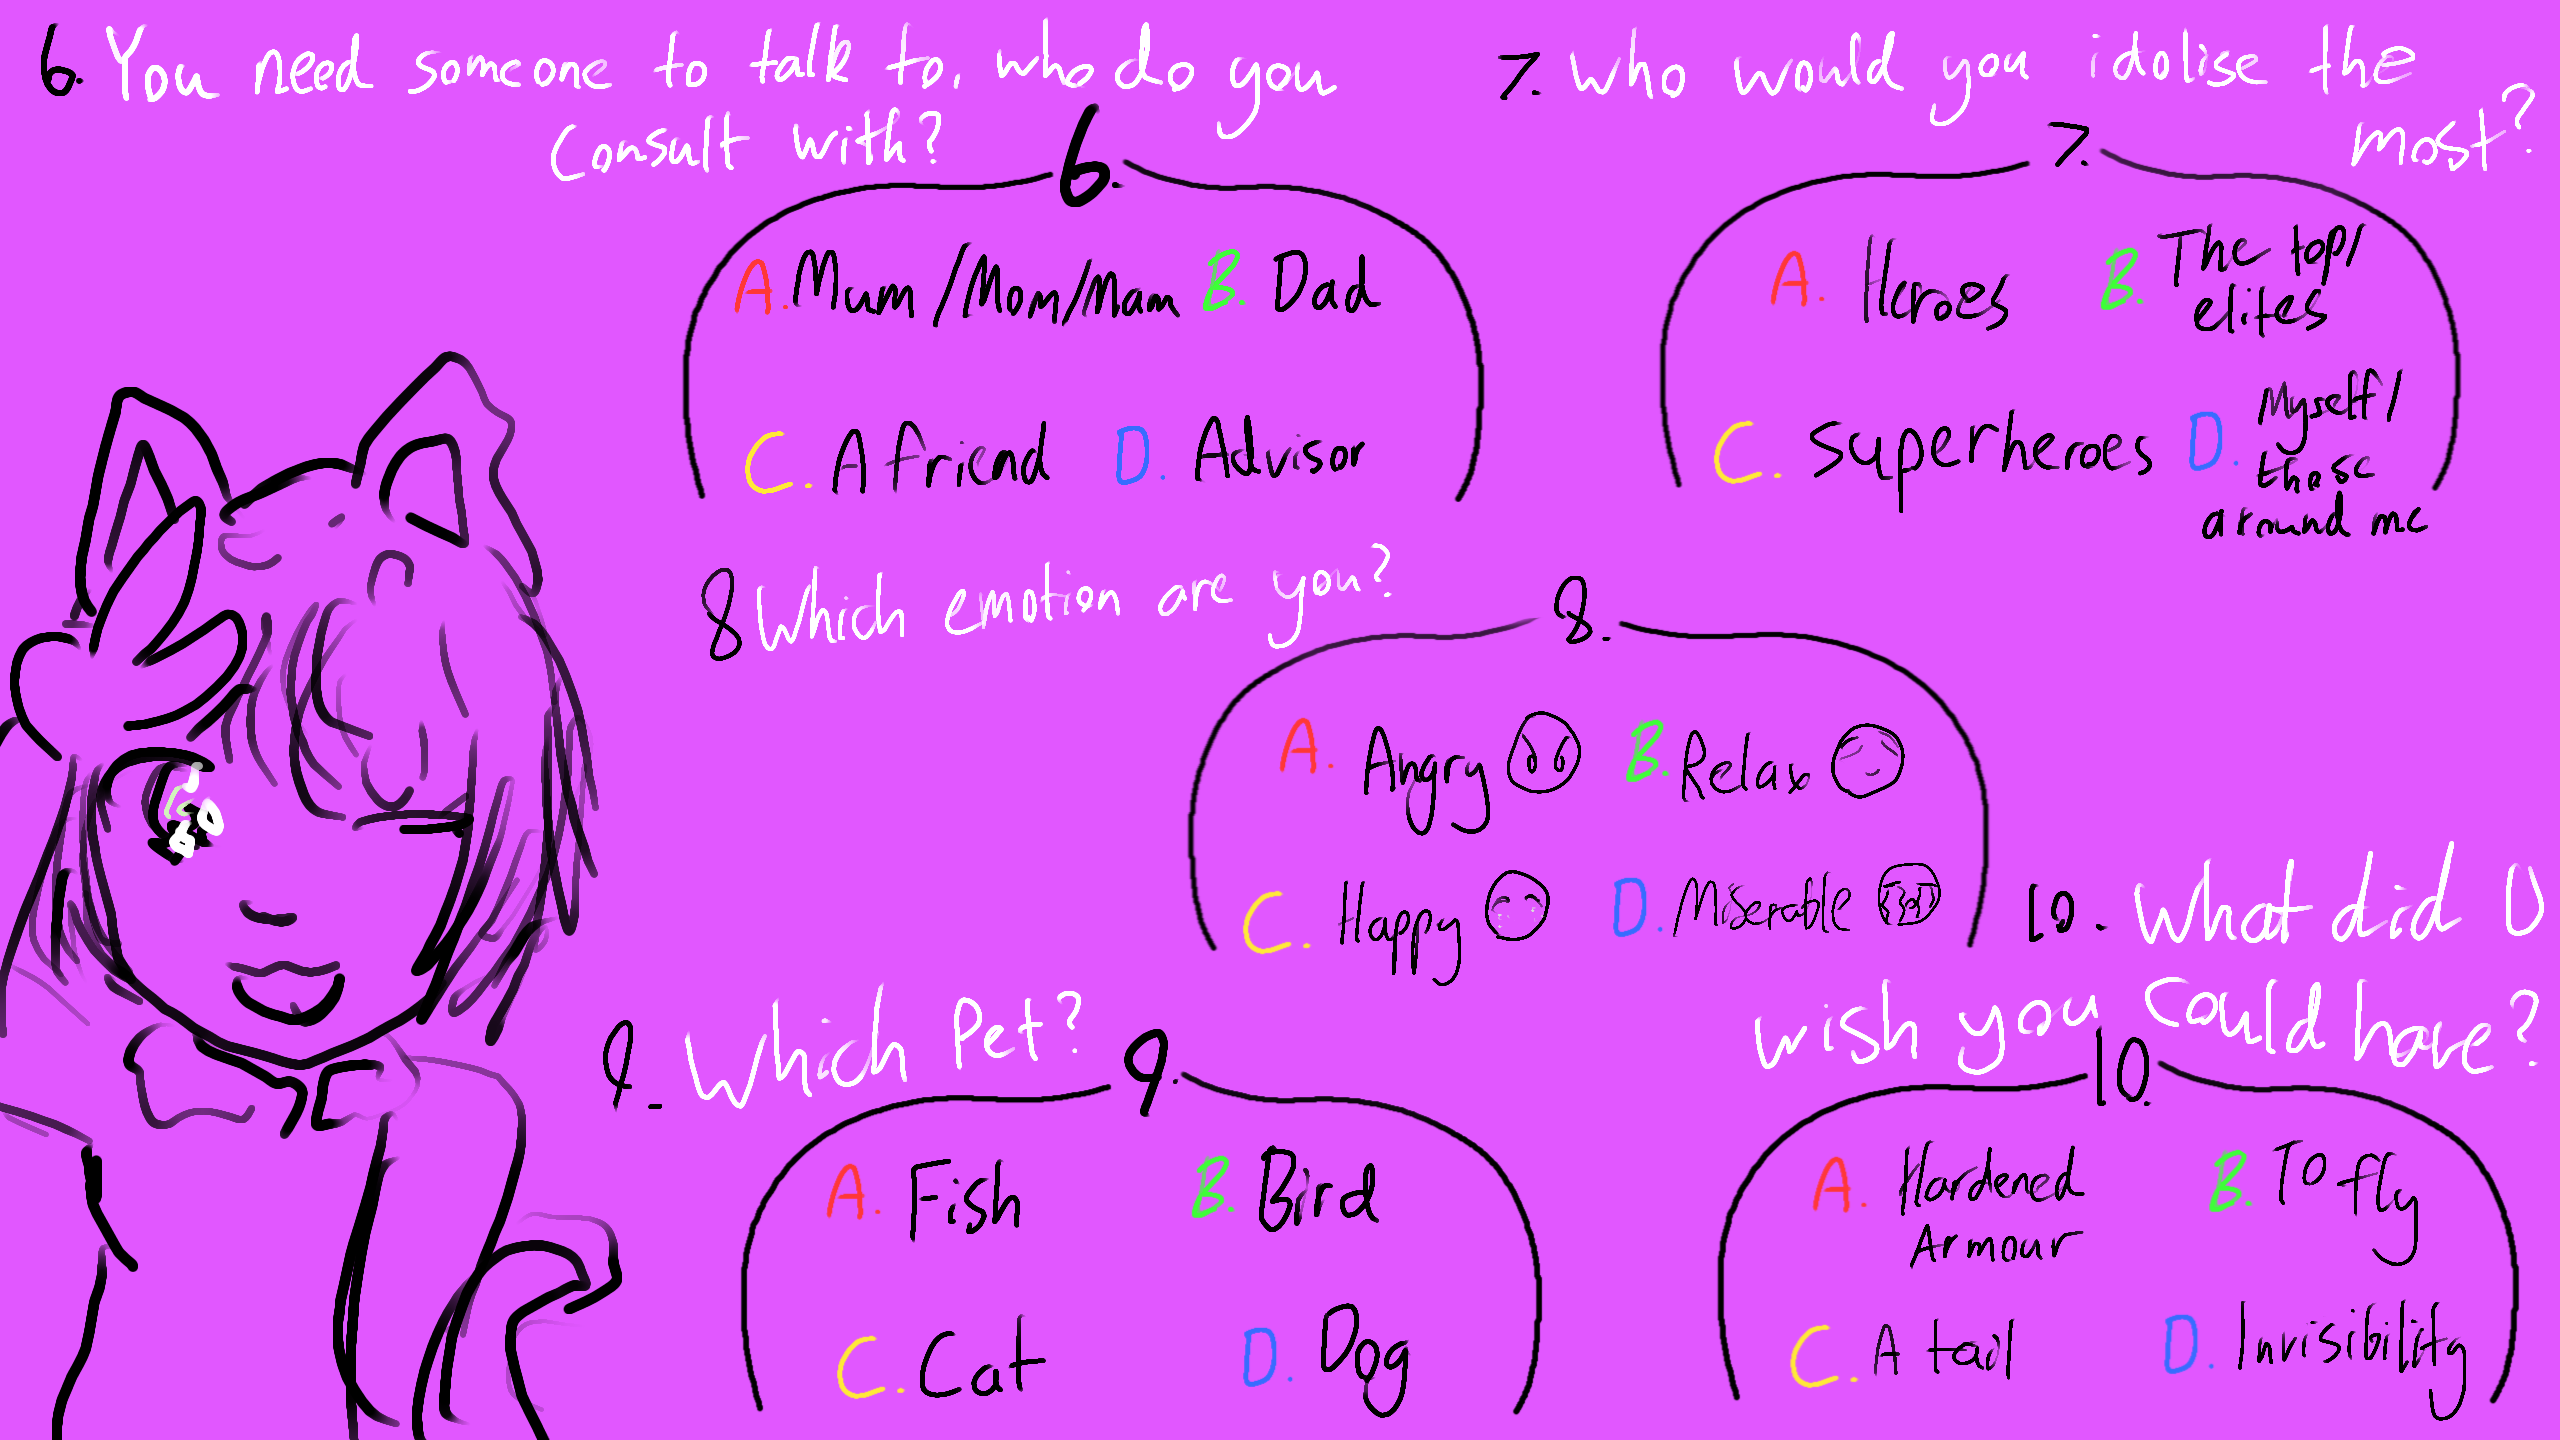 6. You need someone to talk to, who do you
consult with?
6.
A. Mum/Mom/Mam B. Dad
C. A friend D. Advisor
7. Who would you idolise the
most?
7.
A. Heroes B. The top/
elites
C. Superheroes D. Myself/
those
around me
8 Which emotion are you?
8.
A. Angry B. Relax
C. Happy D. Miserable
9. Which Pet?
9.
A. Fish B. Bird
C. Cat D. Dog
10. What did U
wish you could have?
10.
A. Hardened
Armour
B. To fly
C. A tail D. Invisibility